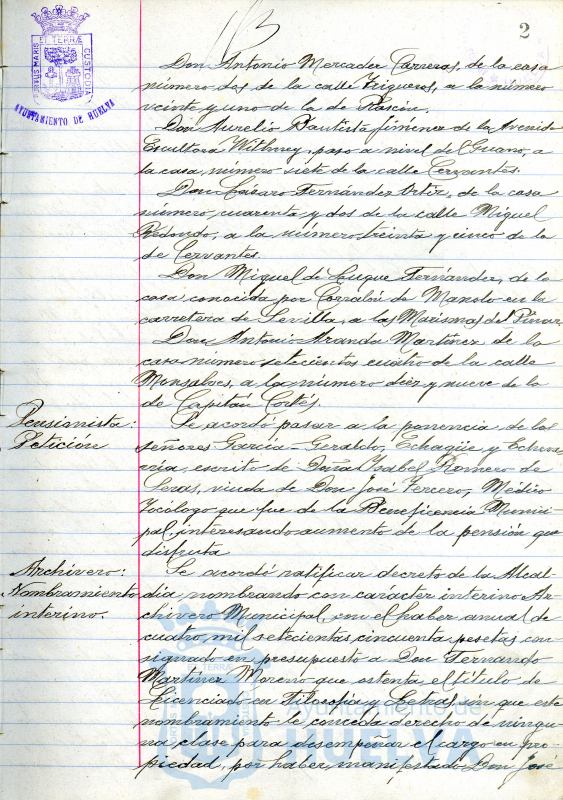 2
PORTUS MARIS ET TERRÆ CUSTODIA
AYUNTAMIENTO DE HUELVA
Don Antonio Mercader Carreras, de la casa
número dos de la calle Trigueros, a la número
veinte y uno de la de Rascón.
Don Aurelio Bautista Jiménez de la Avenida
Escultora Withney, paso a nivel del Guano, a
la casa, número siete de la calle Cervantes.
Don Lázaro Fernández Ortiz, de la casa
número, cuarenta y dos de la calle Miguel
Redondo, a la número treinta y cinco de la
de Cervantes.
Don Miguel de Luque Fernández, de la
casa conocida por Corralón de Manolo en la
carretera de Sevilla, a las Maismas del Pinar.
Don Antonio Aranda Martínez de la
casa número setecientos cuatro de la calle
a la número diez y nueve de la
de Capitán Cortés.
Pensionista:
Petición
Se acordó pasar a la ponencia de los
señores García-Geraldo, Echagüe y Echeva-
rría, escrito de Doña Ysabel Romero de
viuda de Don José Tercero, Médico
Tocólogo que fue de la Beneficencia Munici-
pal, interesando aumento de la pensión que
disfruta
Archivero:
Nombramiento
interino.
Se acordó ratificar decreto de la Alcal-
día nombrando con carácter interino Ar-
chivero Municipal, con el haber anual de
cuatro mil setecientas cincuenta pesetas con-
signado en presupuesto a Don Fernando
Martínez Moreno que ostenta el título de
Licenciado en Filosofía y Letras sin que este
nombramiento le conceda derecho de ningu-
na clase para desempeñar el cargo en pro-
piedad, por haber manifestado Don José
Ayuntamiento de
HUELVA